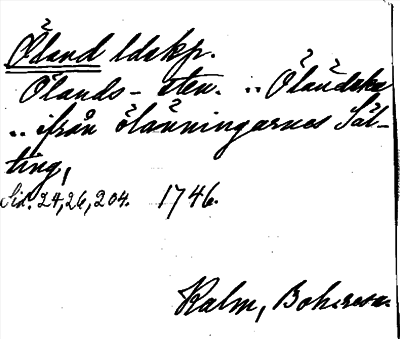 Öland ldskp.
Ölands-sten. .. Öländska
.. ifrån ölänningarnes Säl-
ting,
Sid. 24, 26, 204. 1746.
Kalm, Bohusresa